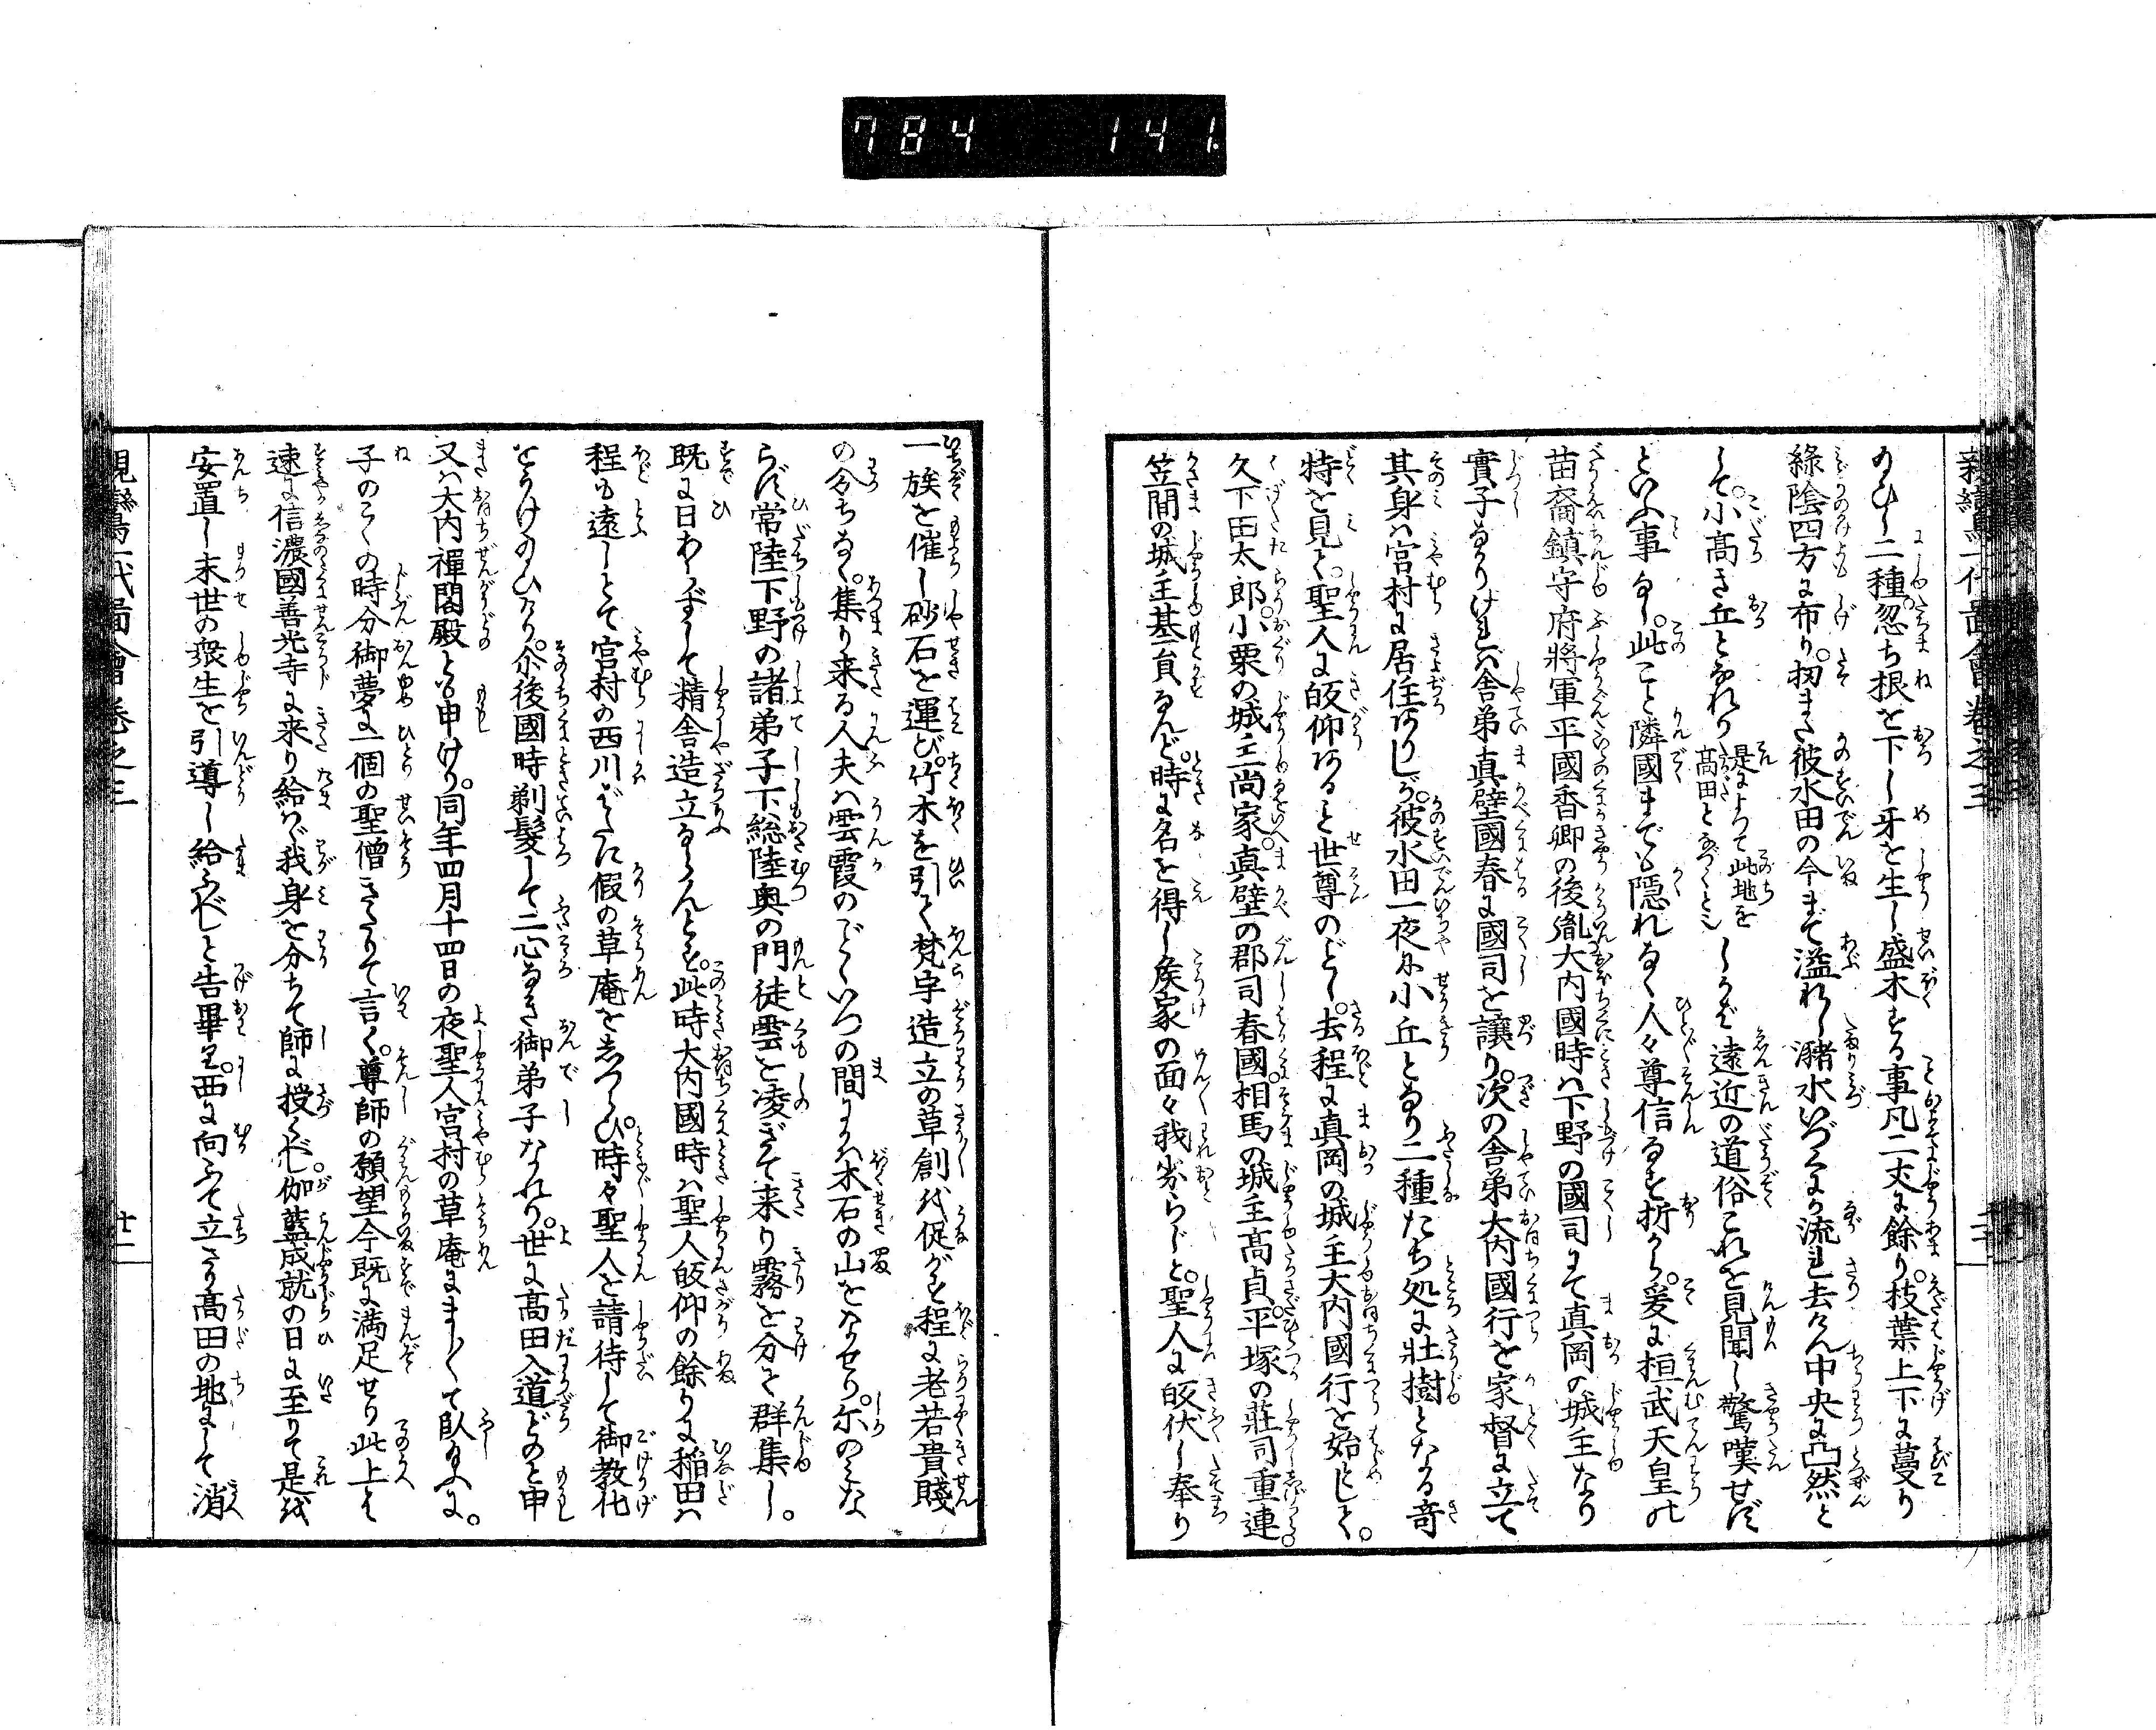 784 141.
親鸞一代圖會卷之三
のひし二種忽ち根を下し牙を生し盛木する事凡二丈に餘り。枝葉上下に蔓り
緑陰四方に布り。扨また彼水田の今まで溢れし瀦水いづくより流れ去けん中央に凸然と
して。小高き丘となれり 是によつて此地を高田となづくとぞ しかば遠近の道俗これを見聞し驚嘆せず
といふ事なし。此こと隣國までも隠れなく人々尊信なる折から。爰に桓武天皇の
苗裔鎮守府將軍平國香卿の後胤大内國時は下野の國司にて真岡の城主なり
實子なかりければ舎弟真壁國春に國司を譲り。次の舎弟大内國行を家督に立て
其身は宮村に居住ありしが。彼水田一夜に小丘となり二種たち処に壯樹となる奇
特を見て。聖人に皈仰ある事世尊のごとし。去程に真岡の城主大内國行を始として。
久下田太郎。小栗の城主尚家。真壁の郡司春國。相馬の城主高貞。平塚の莊司重連。
笠間の城主基員なんど。時に名を得し矦家の面々我劣らじと。聖人に皈伏し奉り
一族を催し砂石を運び。竹木を引て梵字造立の草創を促がす程に老若貴賤
の分ちなく。集り来る人夫は雲霞のごくいつの間にかは木石の山をなせり。尓のみな
らず常陸下野の諸弟子下総陸奥の門徒雲を凌ぎて来り霧を分て群集し。
既に日あらずして精舎造立ならんとす。此時大内國時は聖人皈仰の餘りに稲田は
程も遠しとて宮村の西川ばたに假の草庵をしつらひ。時々聖人を請待して御教化
をうけのひけり。尓後國時剃髪して二心なき御弟子なれり。世に高田入道どのと申
又は大内禪閤殿とも申けり。同年四月十四日の夜聖人宮村の草庵にましまして臥給ふに。
子のこくの時分御夢に一個の聖僧きたりて言く。尊師の願望今既に満足せり此上は
速に信濃國善光寺に来り給はゞ我身を分ちて師に授くべし。伽藍成就の日に至りて是を
安置し末世の衆生を引導し給ふべしと告畢り。西に向ふて立さり高田の地にして消
親鸞一代圖會卷之三
廿二